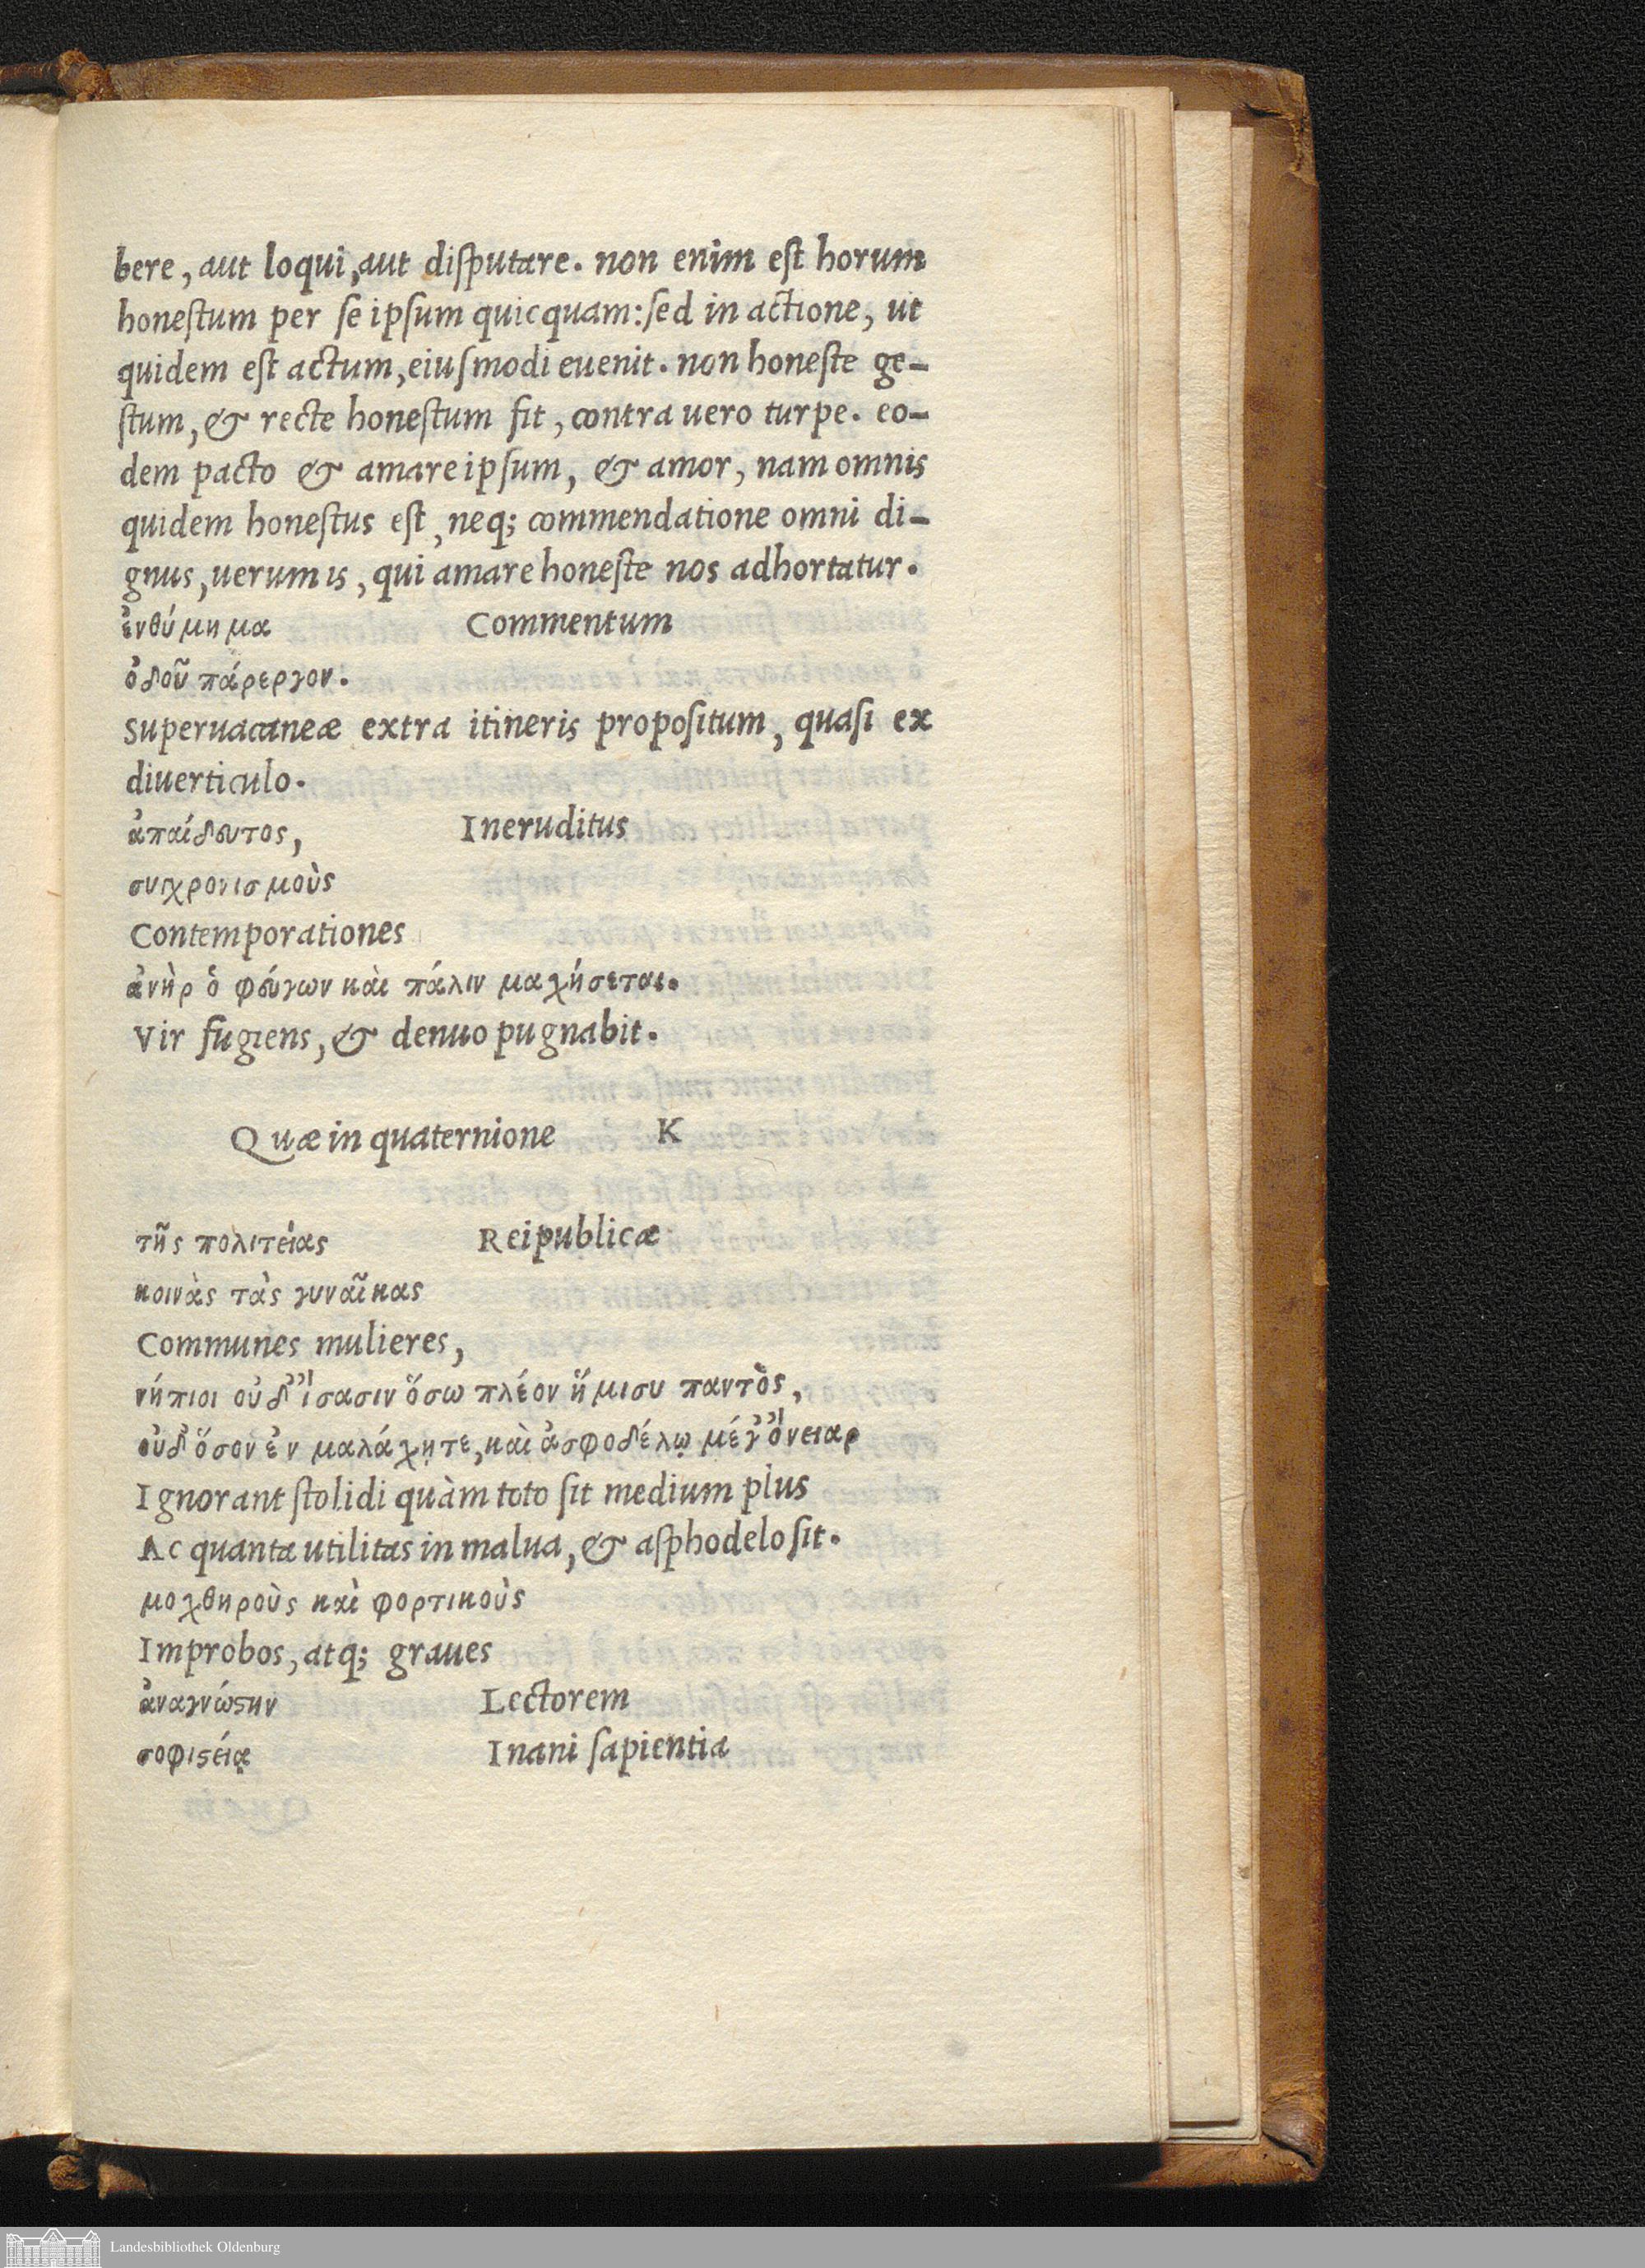 bere, aut loqui, aut diſputare. non enim eſt horum
honeſtum per ſe ipſum quicquam: ſed in actione, ut
quidem eſt actum, eiuſmodi euenit. non honeſte ge-
ſtum, & recte honeſtum fit, contra uero turpe. eo-
dem pacto & amare ipſum, & amor, nam omnis
quidem honeſtus eſt, neq; commendatione omni di-
gnus, uerum is, qui amare honeſte nos adhortatur.
ἐνθύμημα Commentum
ὁδοῦ πάρεργον.
Superuacaneæ extra itineris propoſitum, quaſi ex
diuerticulo.
ἀπαίδευτος, Ineruditus
συγχρονισμοὺς
Contemporationes
ἀνὴρ ὁ φεύγων καὶ πάλιν μαχήσεται.
Vir fugiens, & denuo pugnabit.
Quæ in quaternione K
τῆς πολιτείας Reipublicæ
κοινὰς τὰς γυναῖκας
Communes mulieres,
νήπιοι οὐδ᾽ ἴσασιν ὅσω πλέον ἥμισυ παντὸς,
οὐδ᾽ ὅσον ἐν μαλάχῃ τε, καὶ ἀσφοδέλῳ μέγ᾽ ὄνειαρ
Ignorant ſtolidi quàm toto ſit medium plus
Ac quanta utilitas in malua, & aſphodelo ſit.
μοχθηροὺς καὶ φορτικοὺς
Improbos, atq; graues
ἀναγνώϛην Lectorem
σοφιϛείᾳ Inani ſapientia
Landesbibliothek Oldenburg